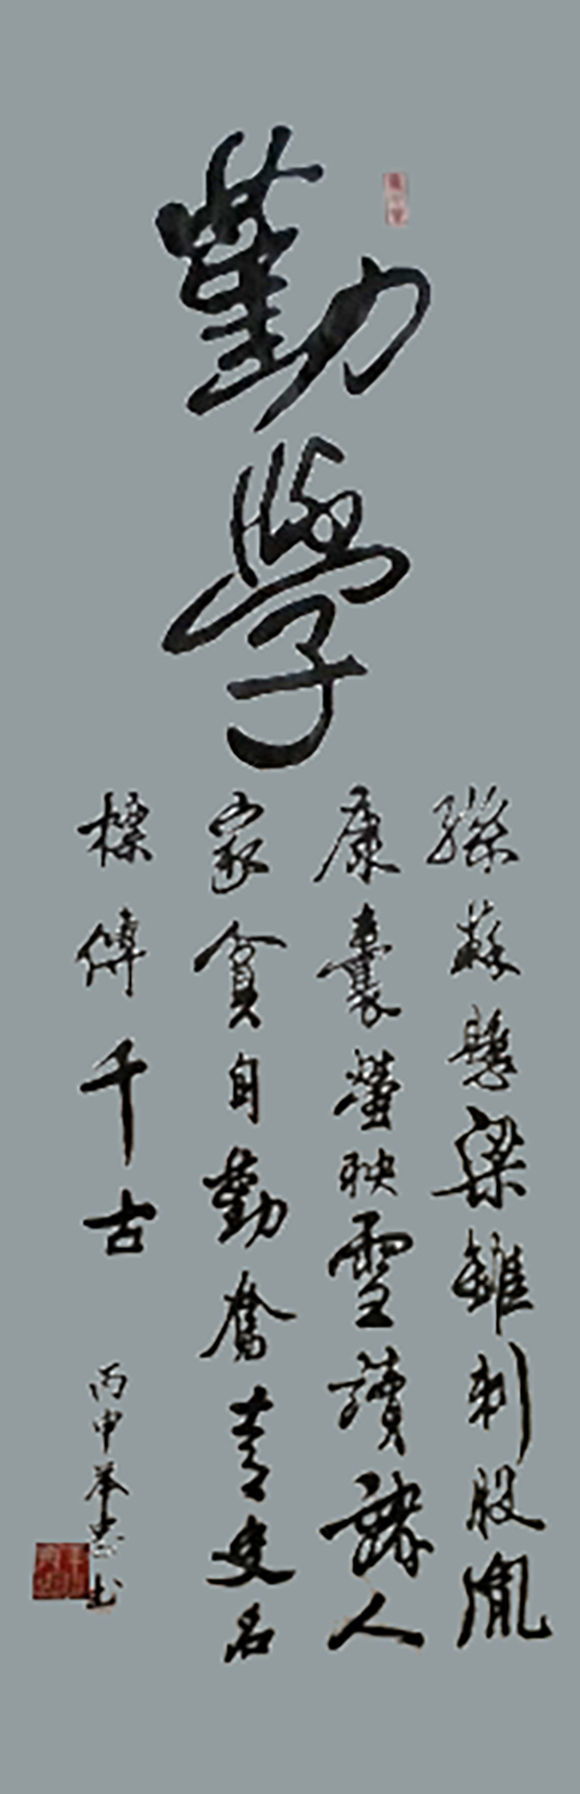 勤學
孫蘇懸梁錐刺股胤
康囊螢映雪讀諸人
家貧自勤奮青史名
標傳千古
丙申